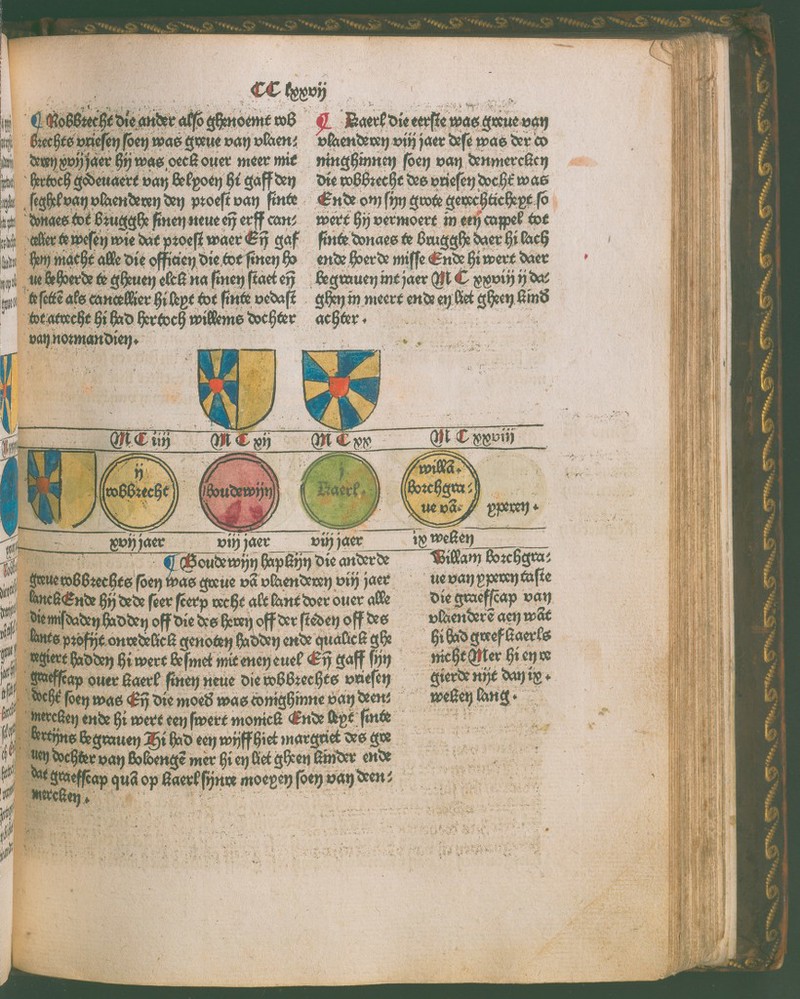 CC lxxvij
Robbrecht die ander also ghenoemt rob
brechts vriesen soen was greue van vlaen⸗
deren xvij jaer hij was oeck ouer meer mit
hertoch godeuaert van belyoen hi gaff den
seghel van vlaenderen den proest van sinte
donaes tot brugghe sinen neue eñ erff can⸗
cellier te wesen wie dat proest waer Eñ gaf
hem macht alle die officien die tot sinen ho
ue behoerde te gheuen elck na sinen staet eñ
te settē als cancellier hi leyt tot sinte vedast
tot atrecht hi had hertoch willems dochter
van normandien.
Kaerl die eerste was greue van
vlaenderen viij jaer dese was der co
ninghinnen soen van denmercken
die robbrecht des vriesen docht was
Ende om sijn grote gerechticheyt so
wert hij vermoert in een cappel tot
sinte donaes te brugghe daer hi lach
ende hoerde misse Ende hi wert daer
begrauen int jaer M C xxviij ij da⸗
ghen in meert ende en liet gheen kind
achter.
M C iiij
M C xij
M C xx
M C xxviij
ij
robbrecht
boudewijn
j
Kaerl.
willā.
borchgra⸗
ue vā.
yperen.
xvij jaer
viij jaer
viij jaer
ix weken
Boudewijn hapkijn die anderde
greue robbrechts soen was greue vā vlaenderen viij jaer
lanck Ende hij dede seer scerp recht alt lant doer ouer alle
die misdaden hadden off die des heren off der steden off des
lants profijt onredelick genoten hadden ende qualick ghe
regiert hadden hi wert besmet mit enen euel Eñ gaff sijn
graefscap ouer kaerl sinen neue die robbrechts vriesen
docht soen was Eñ die moed was conighinne van deen⸗
mercken ende hi wert een swert monick Ende leyt sinte
bertijns begrauen Hi had een wijff hiet margriet des gre
uen dochter van boloengē mer hi en liet gheen kinder ende
dat graefscap quā op kaerl sijnre moeyen soen van deen⸗
mercken.
Willam borchgra⸗
ue van yperen taste
die graefscap van
vlaenderē aen wāt
hi had greef kaerls
nicht Mer hi en re
gierde nijt dan ix.
weken lang.